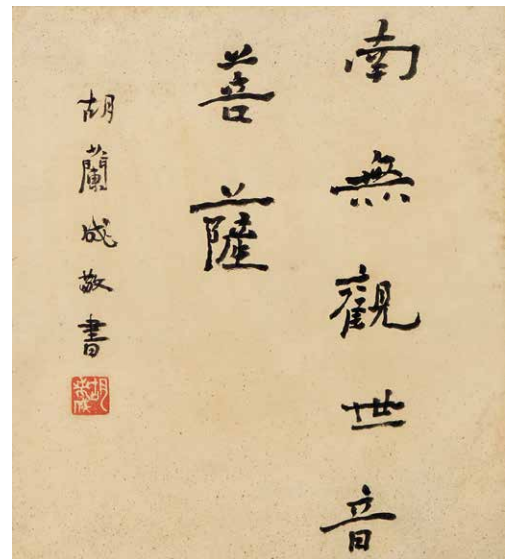 南無觀世音
菩薩
胡蘭成敬書